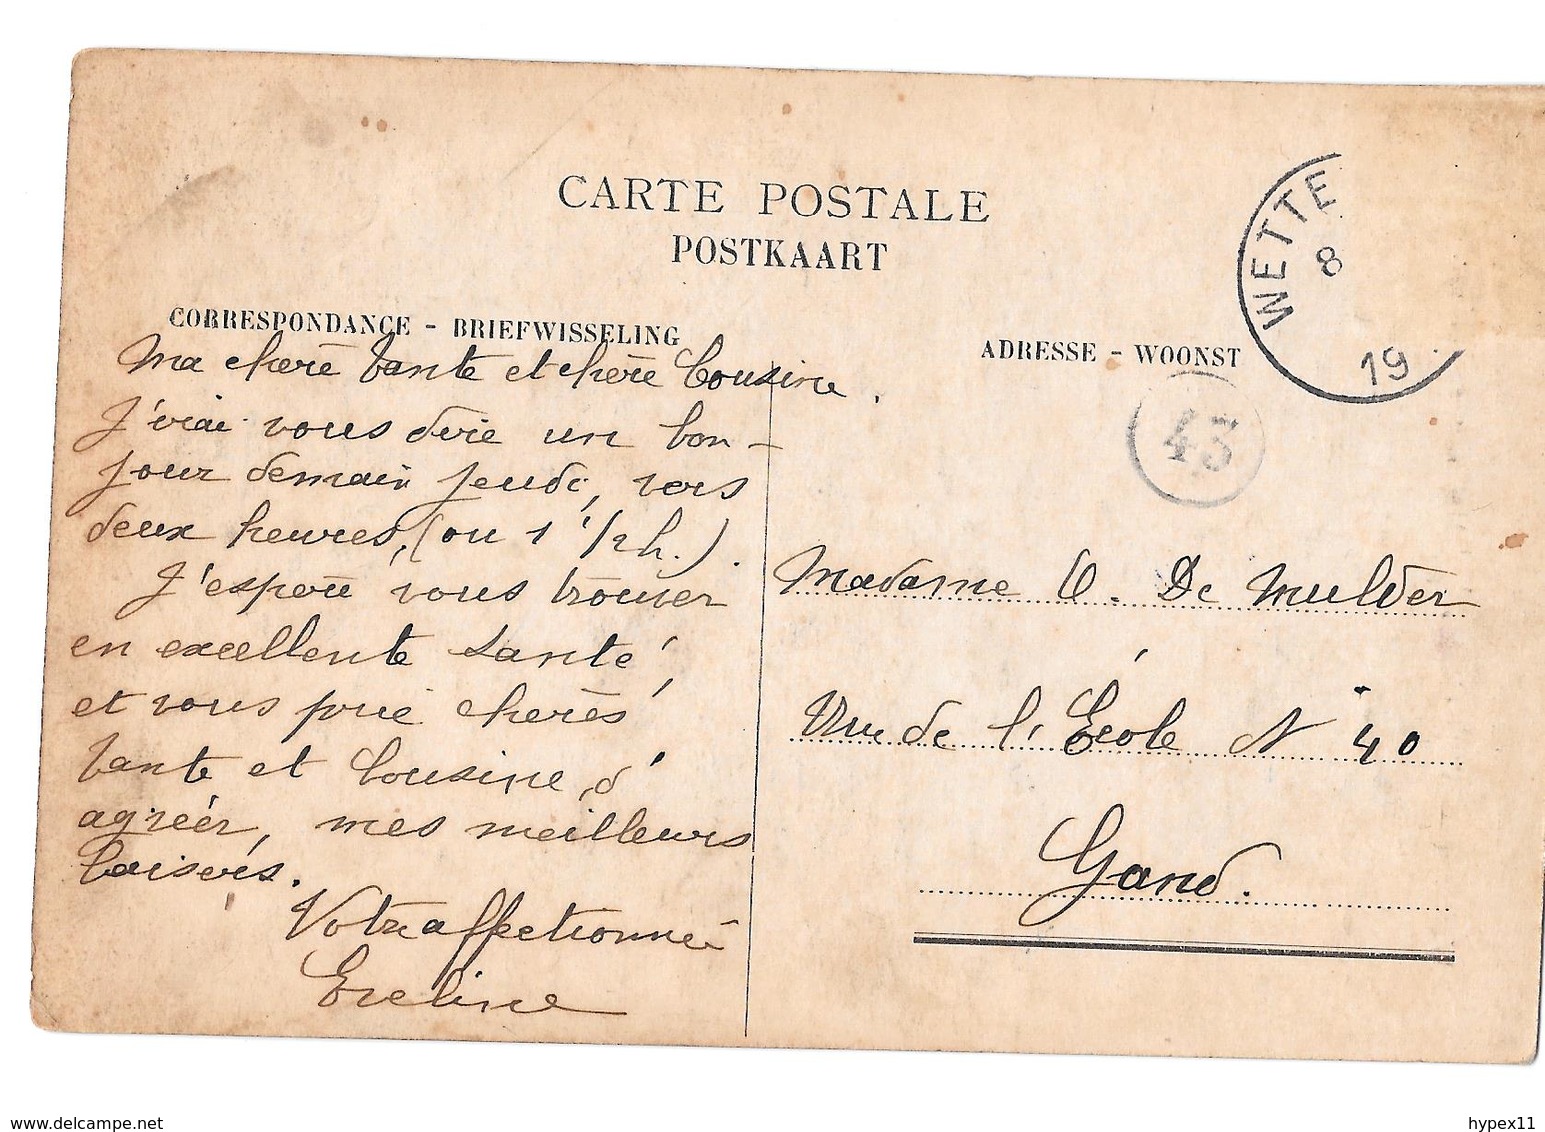 CARTE POSTALE
POSTKAART
CORRESPONDANCE - BRIEFWISSELING
Ma chère tante et chère Cousine.
J'irai vous dire un bon-
jour demain jeudi, vers
deux heures, (ou 1 1/2 h.).
J'espère vous trouver
en excellente santé,
et vous prie chères
tante et Cousine, d'
agréer, mes meilleurs
baisers.
Votre affectionnée
Eveline
WETTE
8
19
ADRESSE - WOONST
43
Madame O. De Mulder
Rue de l'École N 40
Gand.
© www.delcampe.net
hypex11